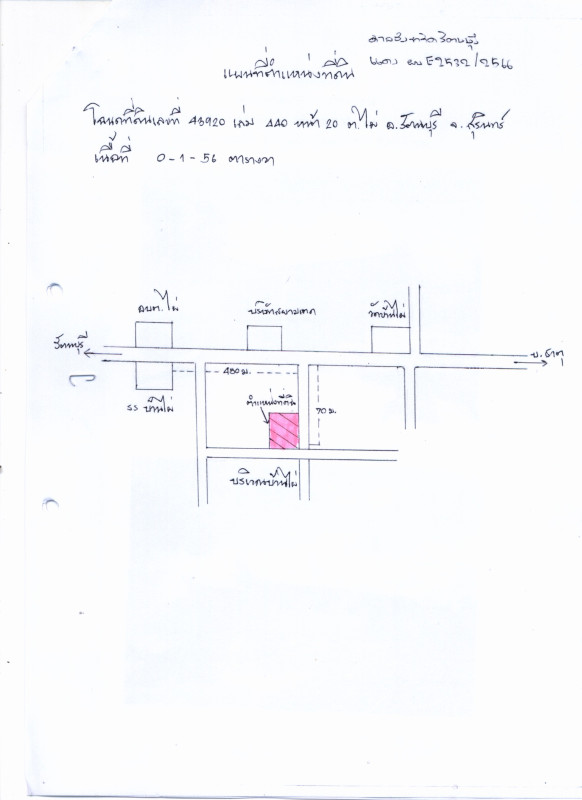 ศาลจังหวัดรัตนบุรี
แดง ผบE2532/2566
แผนที่ตำแหน่งที่ดิน
โฉนดที่ดินเลขที่ 43920 เล่ม 440 หน้า 20 ต.ไผ่ อ.รัตนบุรี จ.สุรินทร์
เนื้อที่ 0-1-56 ตารางวา
อบต.ไผ่
วัดบ้านไผ่
รัตนบุรี
บ.ธาตุ
450 ม.
ตำแหน่งที่ดิน
70 ม.
รร บ้านไผ่
บริเวณบ้านไผ่